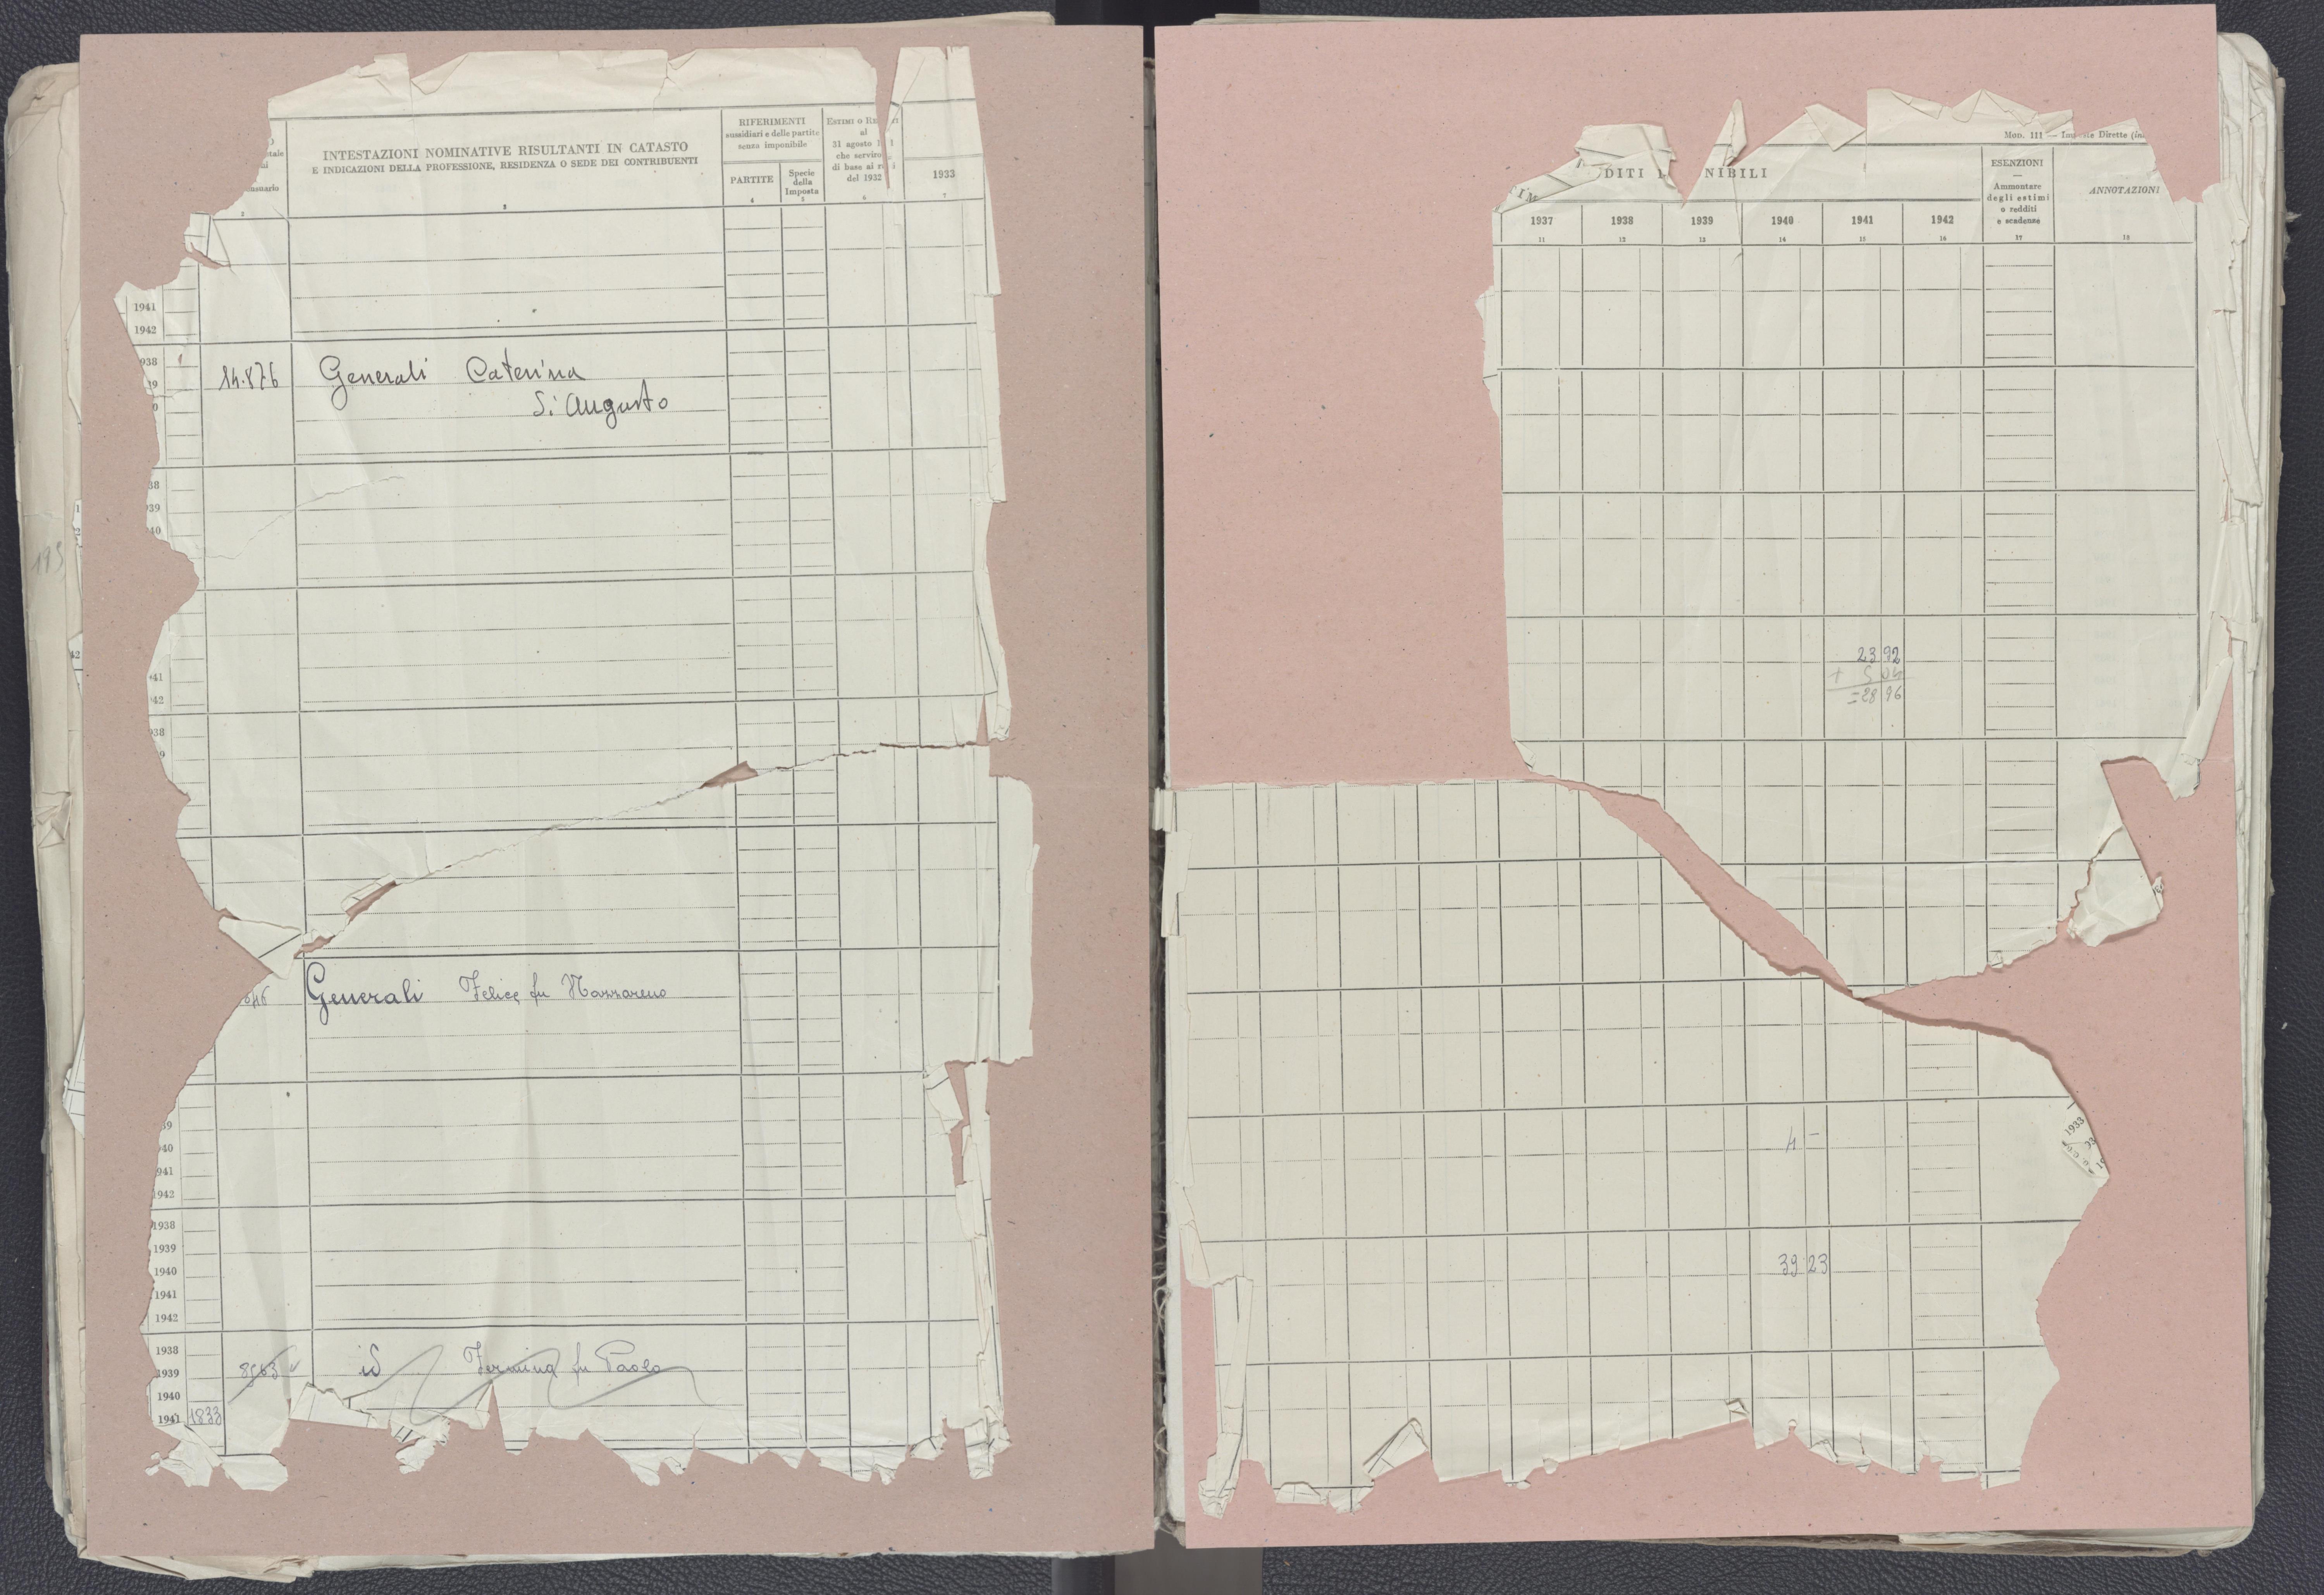 INTESTAZIONI NOMINATIVE RISULTANTI IN CATASTO
E INDICAZIONI DELLA PROFESSIONE, RESIDENZA O SEDE DEI CONTRIBUENTI
2
3
RIFERIMENTI
sussidiari e delle partite
senza imponibile
PARTITE
4
Specie
della
Imposta
5
ESTIMI O
al
31 agosto
che
di base ai
del 1932
6
1933
7
1941
1942
14.876 Generali Caterina
di Augusto
Generali Felice fu Nazzareno
1940
1941
1942
1938
1939
1940
1941
1942
1938
1939
1940
1941 1833
id Fermina fu Paolo
MOD. 111 — Imposte Dirette
DITI NIBILI
1937
11
1938
12
1939
13
1940
14
1941
15
1942
16
ESENZIONI
—
Ammontare
degli estimi
o redditi
e scadenze
17
ANNOTAZIONI
18
23 92
+ 5 04
= 28 96
4 –
39 23
1933
193